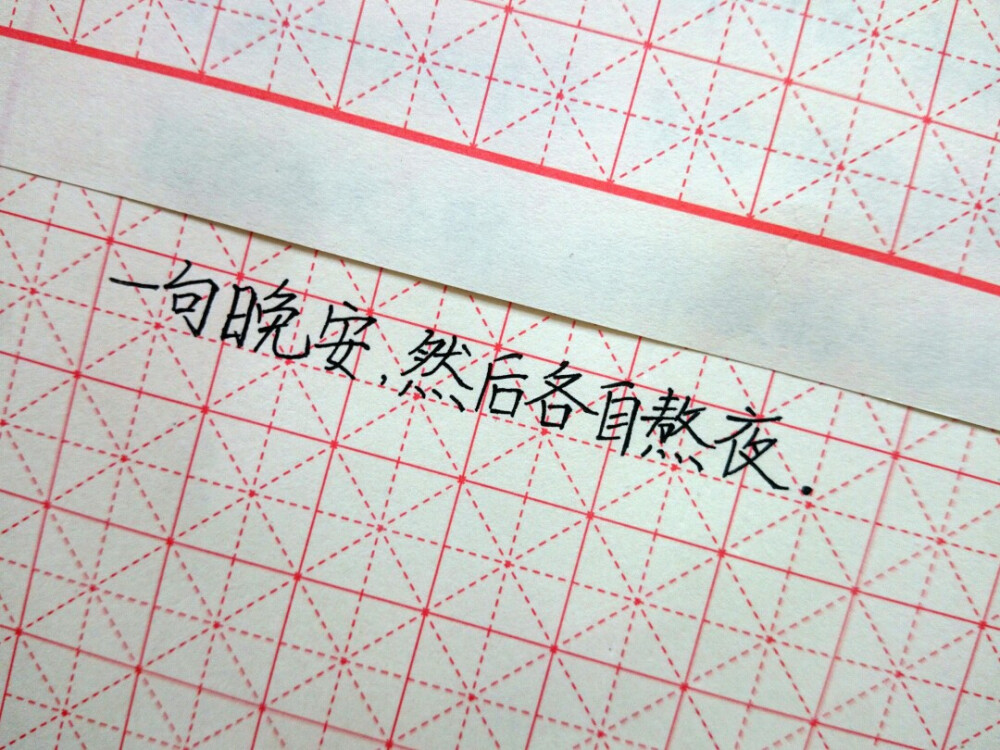 一句晚安,然后各自熬夜.